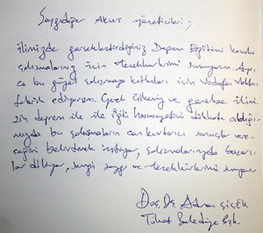 Saygıdeğer Akut yöneticileri;
ilimizde gerçekleştirdiğiniz Deprem Eğitimi konulu
çalışmalarınız için teşekkürlerimi sunuyorum. Ayrı-
ca bu güzel çalışmaya katkıları için Vodafon Vakfını
tebrik ediyorum. Gerek ülkemiz ve gerekse ilimi-
zin deprem ile ilgili dikkate aldığı-
mızda bu çalışmaların can kurtarıcı sonuçlar vere-
ceğini belirtmek istiyor, çalışmalarınızda başarı-
lar diliyor, sevgi saygı ve teşekkürlerimi
Doç. Dr. Adnan ÇİÇEK
Tokat Belediye Bşk.